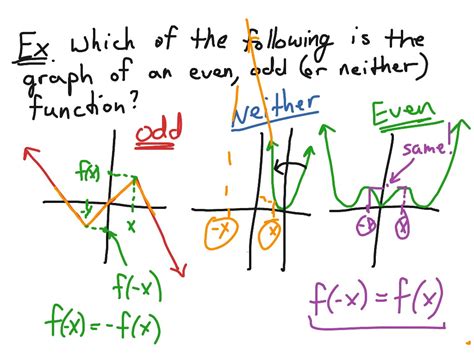 Ex. Which of the following is the
graph of an even, odd (or neither)
function?
odd
Neither
Even
f(x)
-x
x
f(-x)
f(-x) = -f(x)
-x
x
same!
-x
x
f(-x) = f(x)